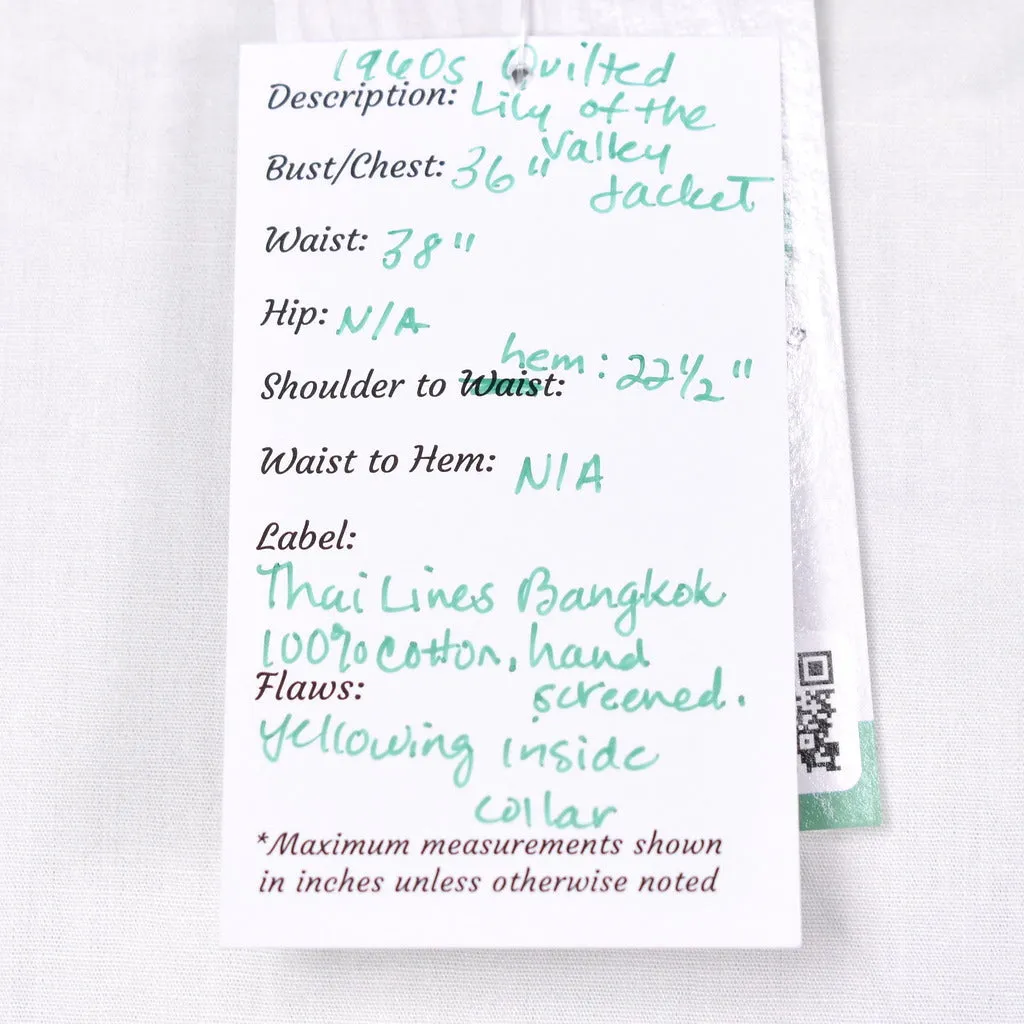 1960s Quilted
Description: Lily of the
Valley
Bust/Chest: 36"
Jacket
Waist: 38"
Hip: N/A
hem: 22 1/2"
Shoulder to Waist:
Waist to Hem: N/A
Label:
Thai Lines Bangkok
100% cotton, hand
Flaws: screened.
yellowing inside
collar
*Maximum measurements shown
in inches unless otherwise noted